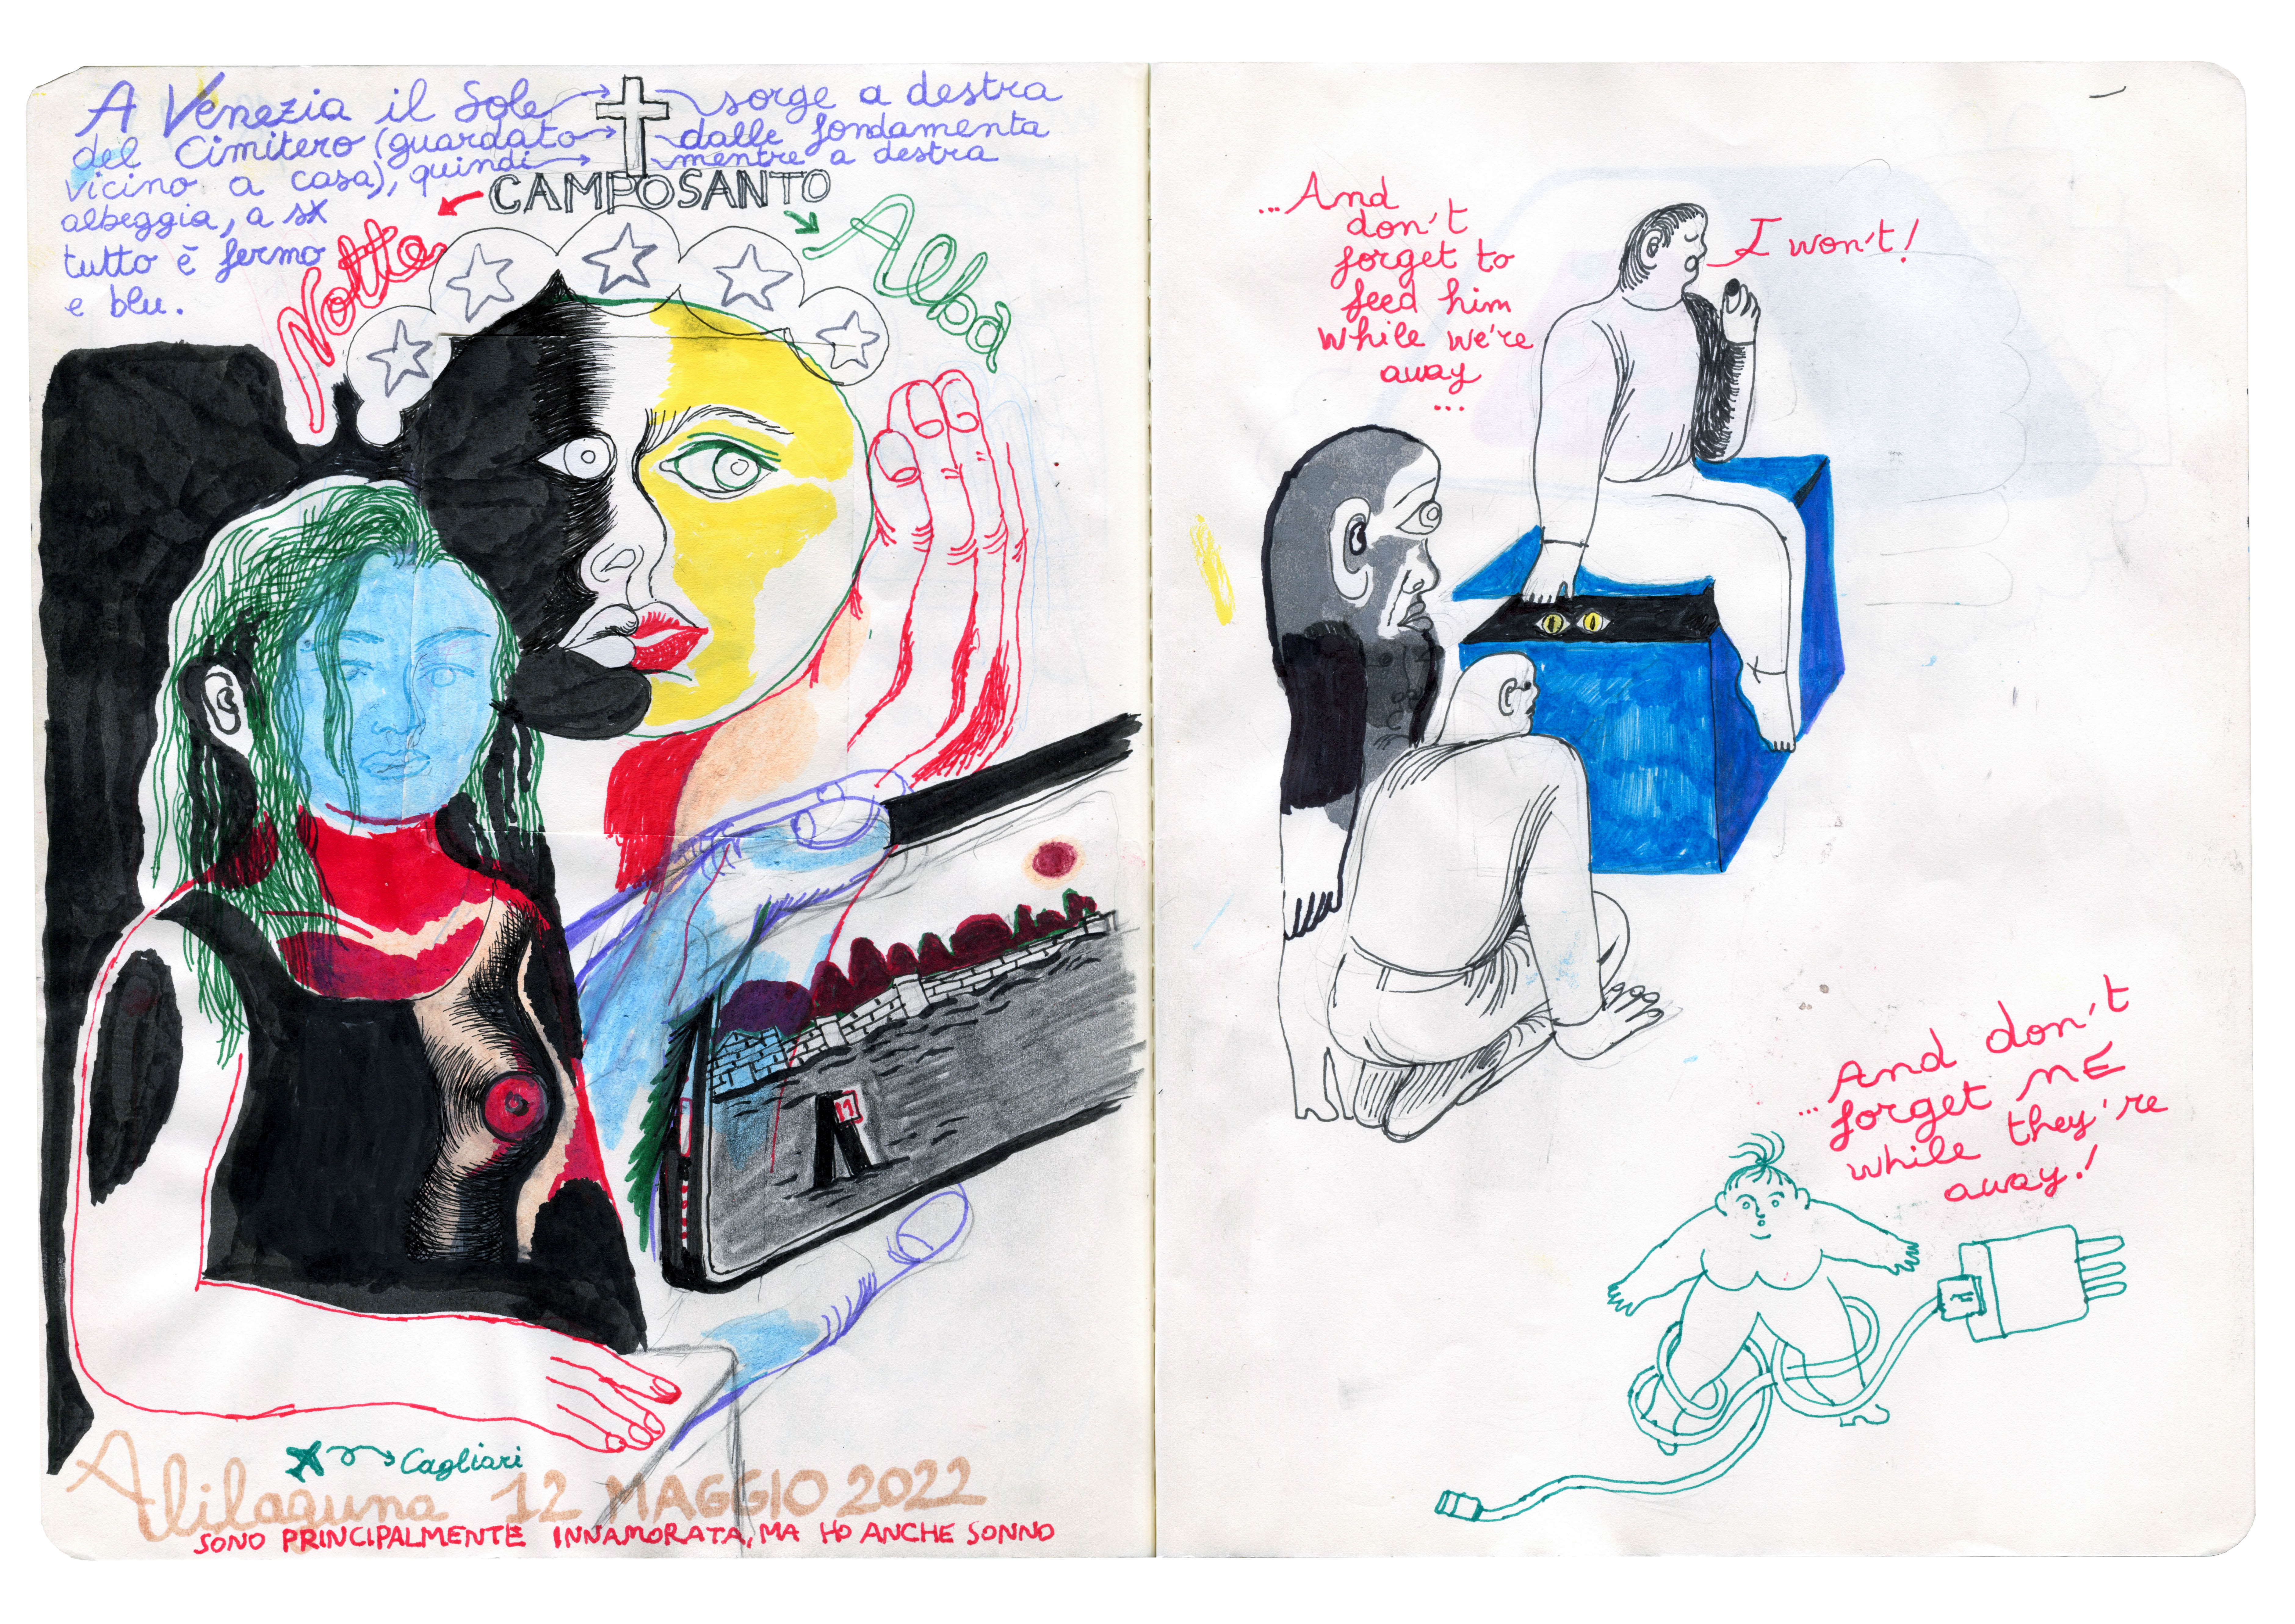 A Venezia il Sole sorge a destra
del Cimitero (guardato dalle fondamenta
vicino a casa), quindi mentre a destra
albeggia, a sx
tutto è fermo
e blu.
CAMPOSANTO
Notte
Alba
11
Cagliari
Alilaguna 12 MAGGIO 2022
SONO PRINCIPALMENTE INNAMORATA, MA HO ANCHE SONNO
...And
don't
forget to
feed him
while we're
away
...
I won't!
...And don't
forget ME
while they're
away!